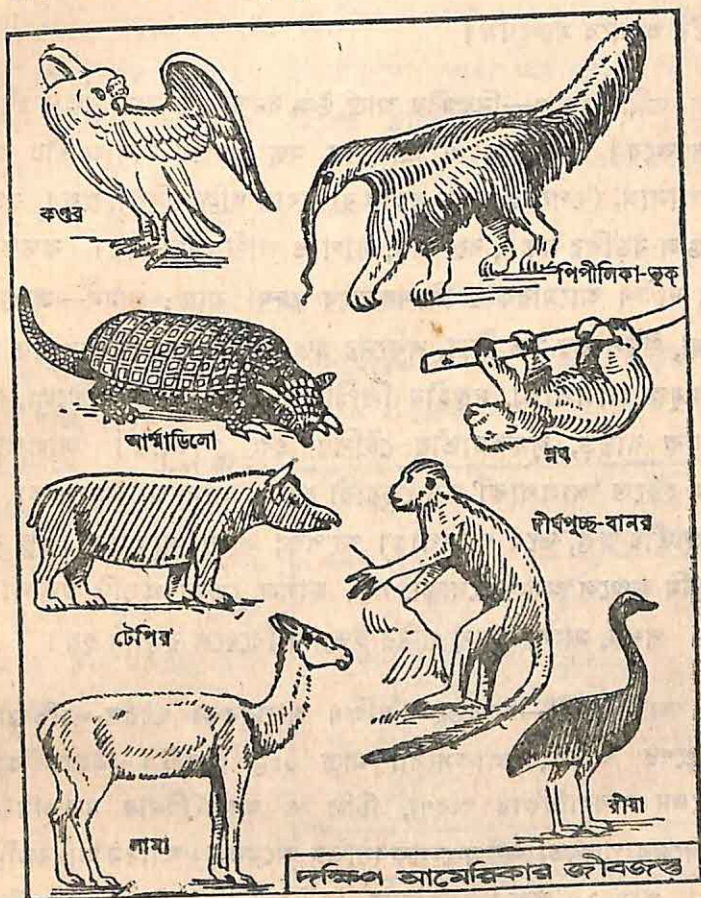 কণ্ডর
পিপীলিকা-ভুক্
আর্ম্মাডিলো
শ্লথ
দীর্ঘপুচ্ছ-বানর
টেপির
রীয়া
লামা
দক্ষিণ আমেরিকার জীবজন্তু